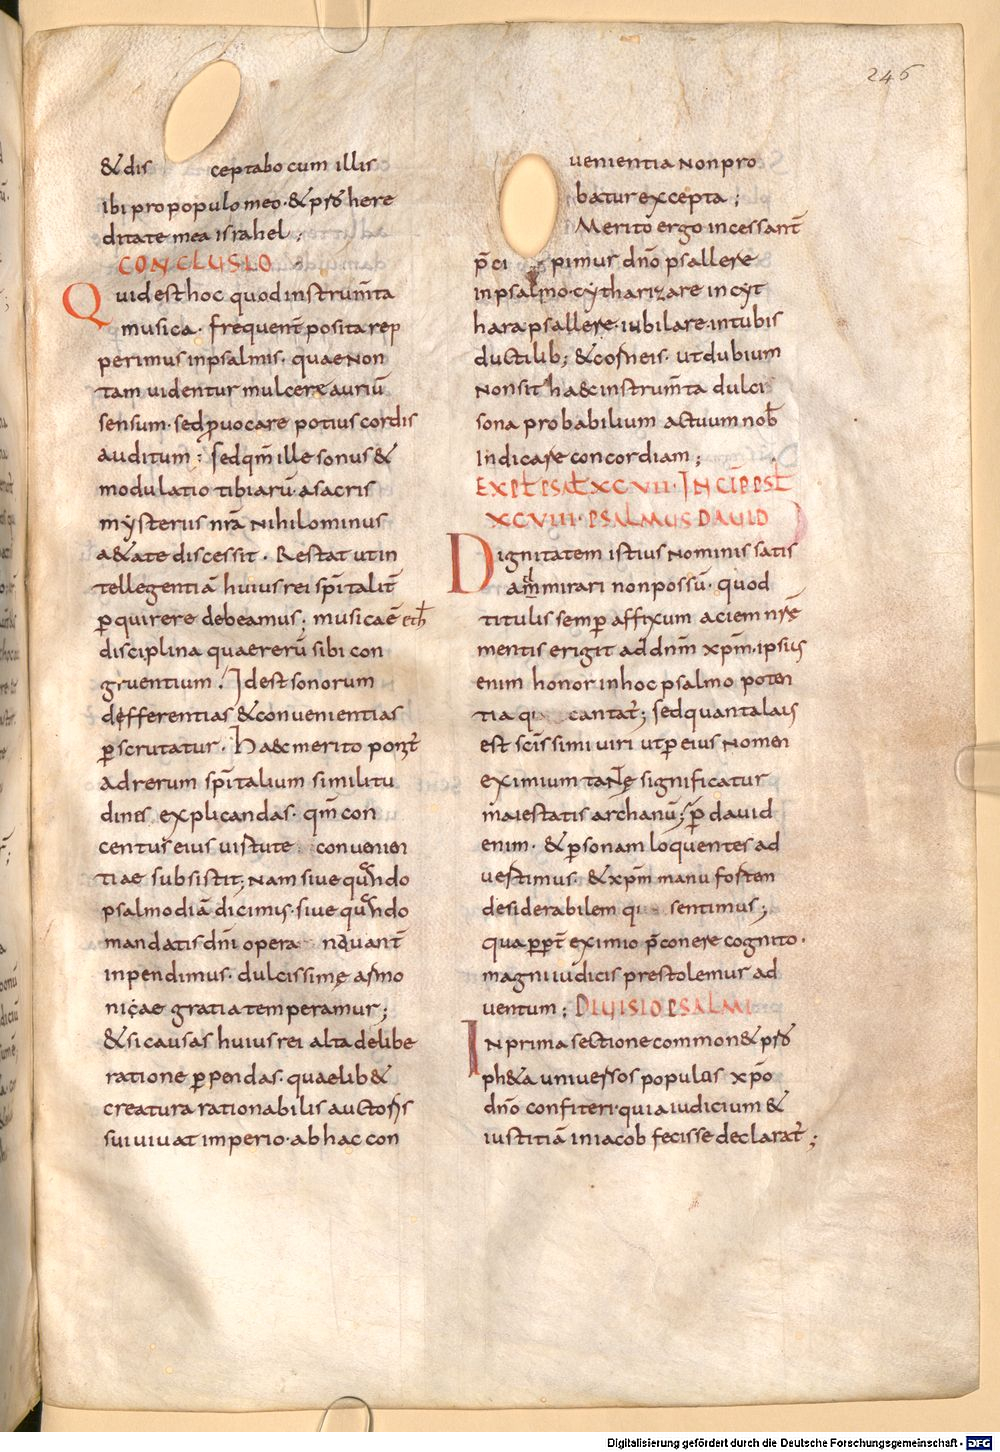 246
& dis ceptabo cum illis
ibi pro populo meo · & prs̄ here
ditate mea israhel ;
CONCLUSIO
Quid est hoc quod instrum̄ta
musica · frequent̄ posita rep
perimus in psalmis · quae non
tam uidentur mulcere auriū
sensum · sed ꝓuocare potius cordis
auditum ; sed qm̄ ille sonus &
modulatio tibiarū a sacris
mysteriis nr̄a nihilominus
a&ate discessit · Restat ut in
tellegentiā huius rei sp̄italit̄
ꝑquirere debeamus ; musica ē
disciplina quae rerū sibi con
gruentium · Id est sonorum
defferentias & conuenientias
ꝑscrutatur · Haec merito
ad rerum sp̄italium similitu
dines explicandas · qm̄ con
centus eius uirtute conuenien
tiae subsistit ; Nam siue quando
psalmodiā dicimus · siue quando
mandatis dn̄i opera nauant̄
inpendimus · dulcissimę armo
nicae gratia temperamur ;
& si causas huius rei alta delibe
ratione ꝑpendas · quaelib&
creatura rationabilis auctoris
sui uiuat imperio · ab hac con
uenientia non pro
batur excepta ;
Merito ergo incessant̄
p̄ci pimur dn̄o psallere
in psalmo · cytharizare in cyt
hara psallere · iubilare · in tubis
ductilib; & corneis · ut dubium
non sit haec instrum̄ta dulci
sona probabilium actuum nob̄
indicare concordiam ;
EXPL̄ PSAL̄ XCVII · INCIP̄ PSL̄
XCVIII · PSALMUS DAUID
Dignitatem istius nominis satis
admirari non possū · quod
titulis semꝑ affixum aciem nrē
mentis erigit ad dnm̄ xpm̄ · ipsius
enim honor in hoc psalmo poten
tia qi cantat̄ ; sed quanta laus
est scīssimi uiri ut ꝑ eius nomen
eximium tantę significatur
maiestatis archanū ; ꝑ dauid
enim · & ꝑsonam loquentes ad
uertimus · & xpm̄ manu fortem
desiderabilem qi sentimus ;
quaꝓpt̄ eximio p̄cone recognito ·
magni iudicis prestolemur ad
uentum ; DIUISIO PSALMI
In prima sectione common& prs̄
ph&a uniuersos populus xpō
dn̄o confiteri · quia iudicium &
iustitiā in iacob fecisse declarat̄ ;
Digitalisierung gefördert durch die Deutsche Forschungsgemeinschaft - DFG